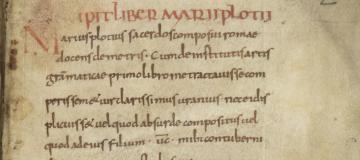 IPIT LIBER MARII PLOTII
Marius plotius sacerdos composui romae
docens de metris. Cum de institutis artis
grammaticae primo libro me tractavisse com
perisset vir clarissimus uranius nec e dis
plicuisset vel quod absurde compositus vel
quod ad eius filium. vc. mihi contuberni